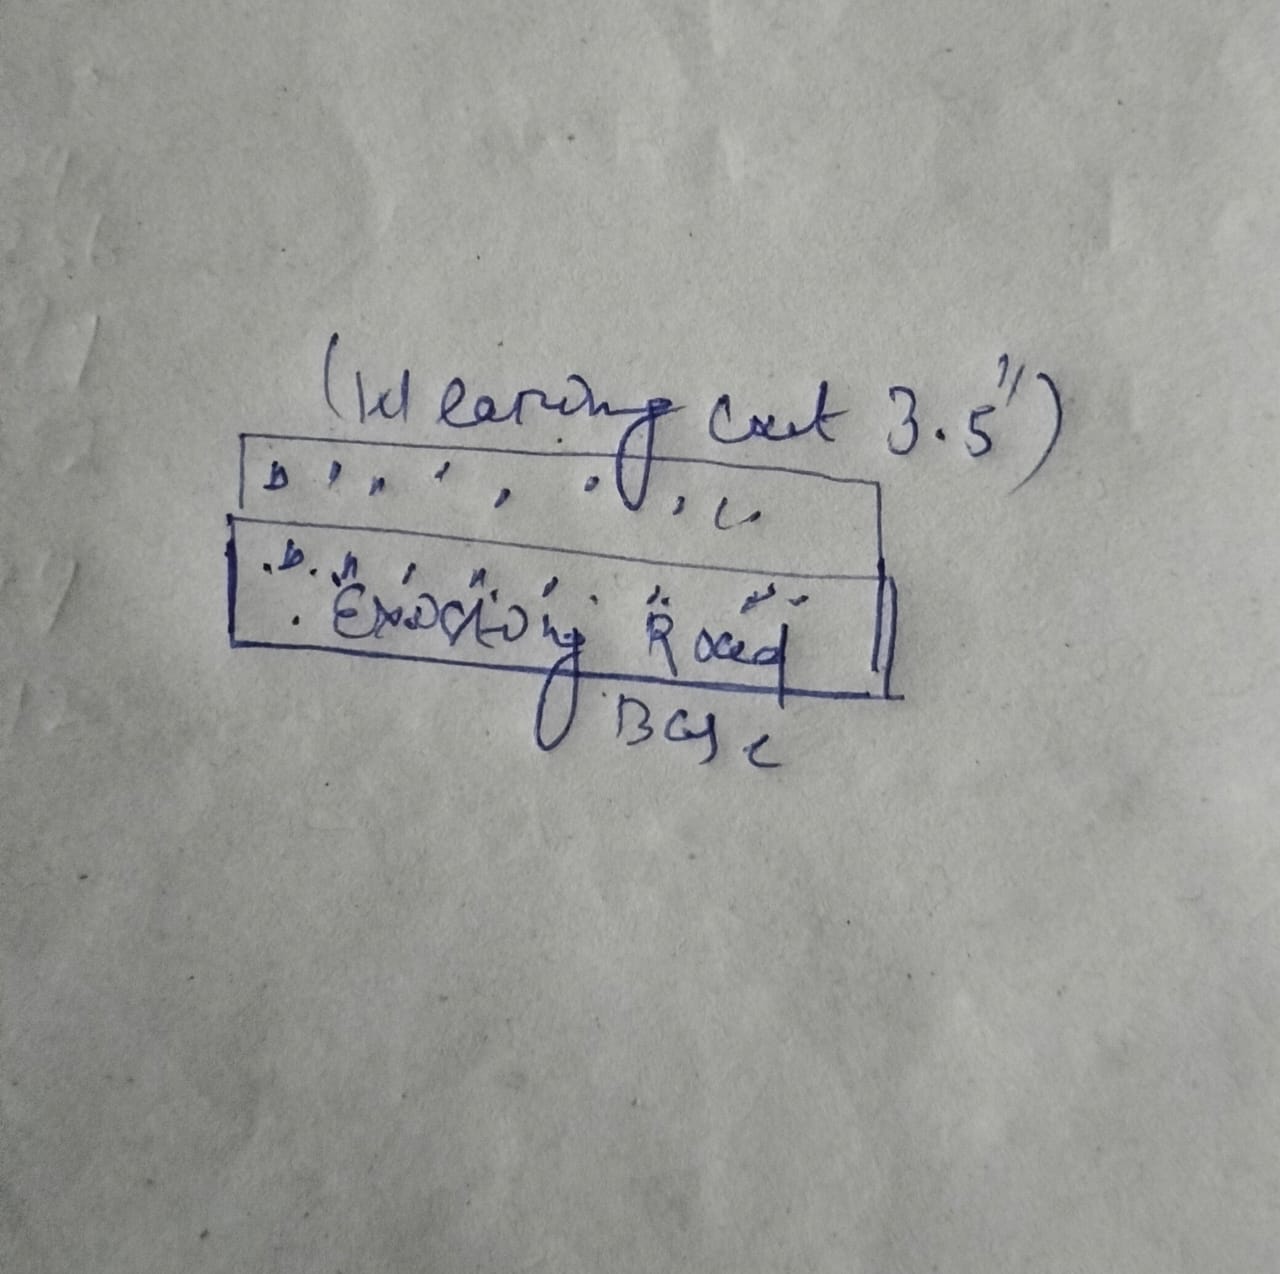 (Wearing coat 3.5")
Existing Road
Base